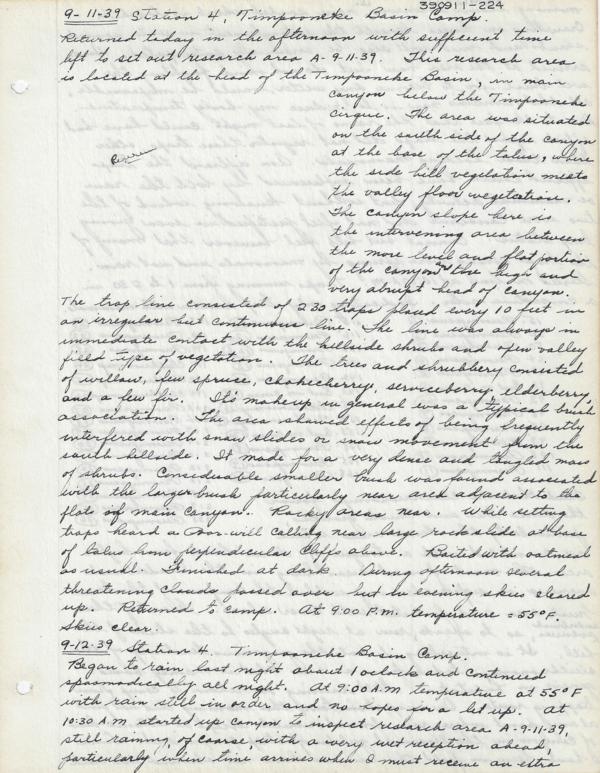 390911-224
9-11-39 Station 4, Timpooneke Basin Camp.
Returned today in the afternoon with sufficient time
left to set out research area A-9-11-39. This research area
is located at the head of the Timpooneke Basin, in main
canyon below the Timpooneke
cirque. The area was situated
on the south side of the canyon
at the base of the talus, where
the side hill vegetation meets
the valley floor vegetation.
The canyon slope here is
the intervening area between
the more level and flat portion
of the canyon and the high and
very abrupt head of canyon.
The trap line consisted of 230 traps placed every 10 feet in
an irregular but continuous line. The line was always in
immediate contact with the hillside shrubs and open valley
field type of vegetation. The trees and shrubbery consisted
of willow, few spruce, chokecherry, serviceberry, elderberry,
and a few fir. It's makeup in general was a typical brush
association. The area showed effects of being frequently
interfered with snow slides or snow movement from the
south hillside. It made for a very dense and tangled mass
of shrubs. Considerable smaller brush was found associated
with the larger brush particularly near area adjacent to the
flats of main canyon. Rocky areas near. While setting
traps heard a Poor-will calling near large rock slide at base
of talus from perpindicular cliffs above. Baited with oatmeal
as usual. Finished at dark. During afternoon several
threatening clouds passed over but in evening skies cleared
up. Returned to camp. At 9:00 P.M. temperature = 55°F.
Skies clear.
9-12-39 Station 4. Timpooneke Basin Camp.
Began to rain last night about 1 oclock and continued
spasmodically all night. At 9:00 A.M temperature at 55°F
with rain still in order and no hopes for a let up. At
10:30 A.M started up canyon to inspect research area A-9-11-39,
still raining, of coarse, with a very wet reception ahead,
particularly when time arrives when I must receive an extra